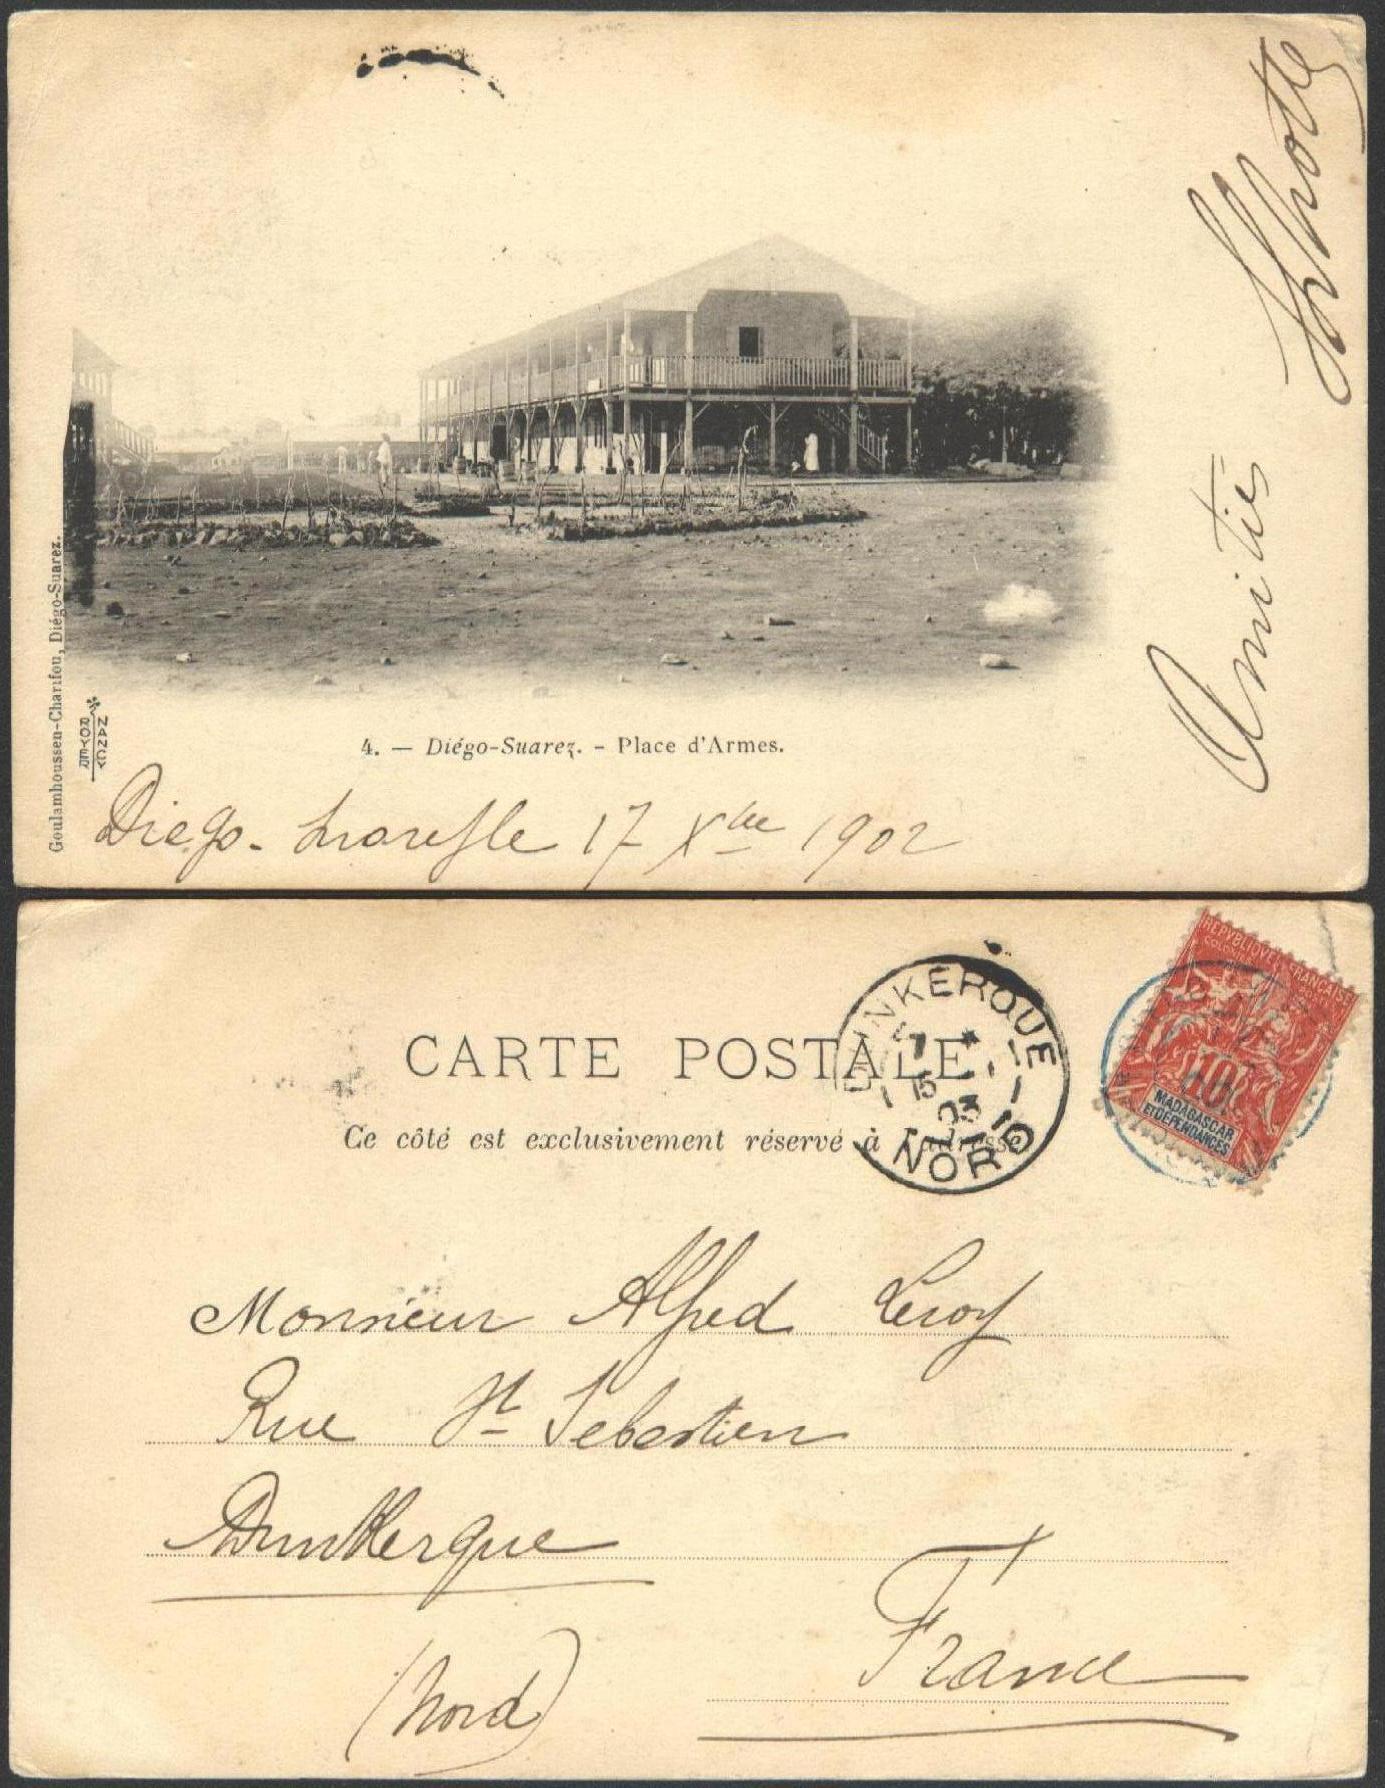 Goulamhoussen-Charifou, Diégo-Suarez.
NANCY
ROYER
4. — Diégo-Suarez. - Place d'Armes.
Diego. 17 Xbre 1902
Amitiés
REPUBLIQUE FRANÇAISE
COLONIES
10c
MADAGASCAR
ET DÉPENDANCES
DUNKERQUE
15
03
NORD
CARTE POSTALE
Ce côté est exclusivement réservé à l'adresse
Monsieur Alfred Leroy
Rue St Sebastien
Dunkerque
(Nord)
France